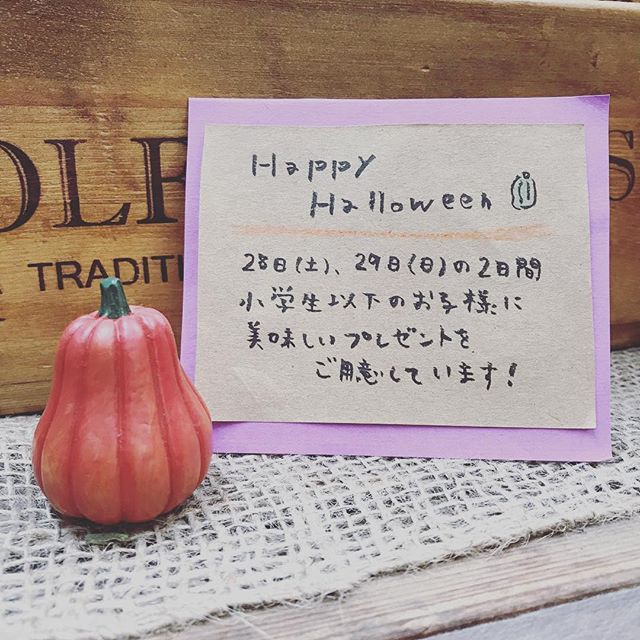 Happy
Halloween
28日(土)、29日(日)の2日間
小学生以下のお子様に
美味しいプレゼントを
ご用意しています!
TRADITI